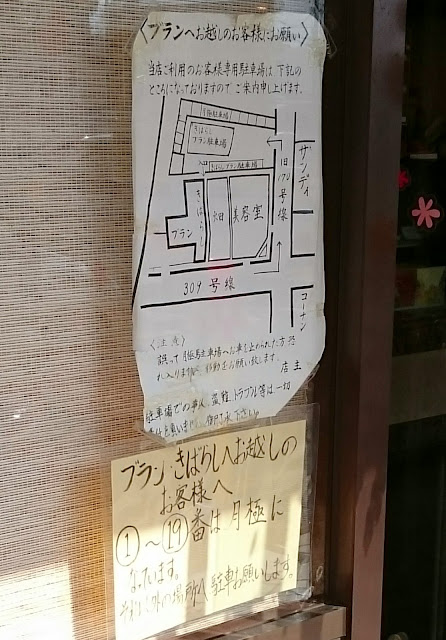 〈ブランへお越しのお客様にお願い〉
当店ご利用のお客様専用駐車場は 下記の
ところになっておりますので ご案内申し上げます。
月極駐車場
きばらし
ブラン駐車場
きばらしブラン駐車場
サンディ
旧170号線
きばらし
美容室
ブラン
309号線
コーナン
〈注意〉
誤って月極駐車場へお車を止められた方 恐
れ入りますが、移動をお願い致します。
店主
駐車場での事故、盗難、トラブル等は一切
ブラン・きばらしへお越しの
お客様へ
①〜⑲番は月極に
なっています。
それ以外の場所へ駐車お願いします。